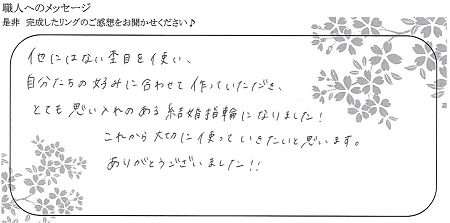 職人へのメッセージ
是非 完成したリングのご感想をお聞かせください♪
他にはない杢目を使い、
自分たちの好みに合わせて作っていただき、
とても思い入れのある結婚指輪になりました!
これから大切に使っていきたいと思います。
ありがとうございました!!